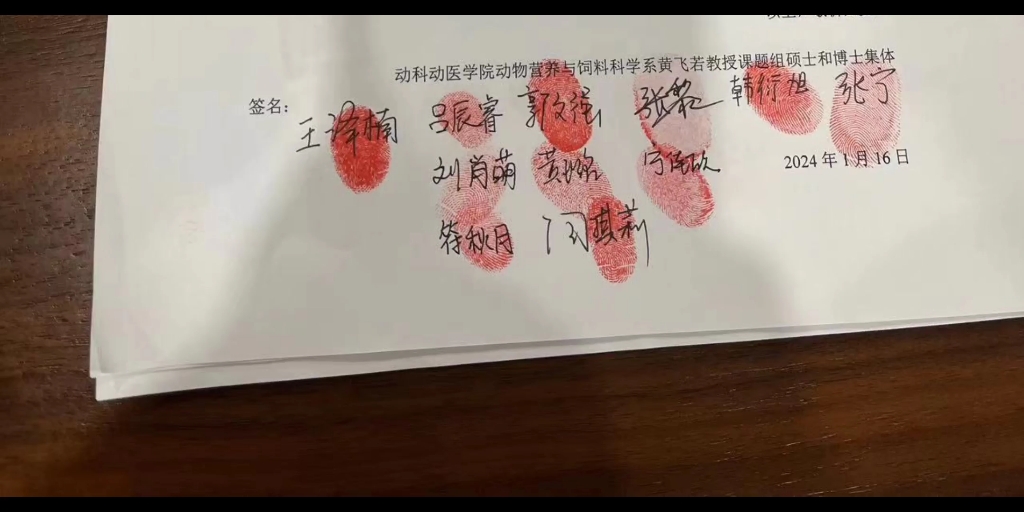 动科动医学院动物营养与饲料科学系黄飞若教授课题组硕士和博士集体
签名：
王泽楠 吕辰睿 郭文强 张黎 韩衍旭 张宁
刘肖萌 黄 宁
2024年1月16日
符秋月 闫祺莉